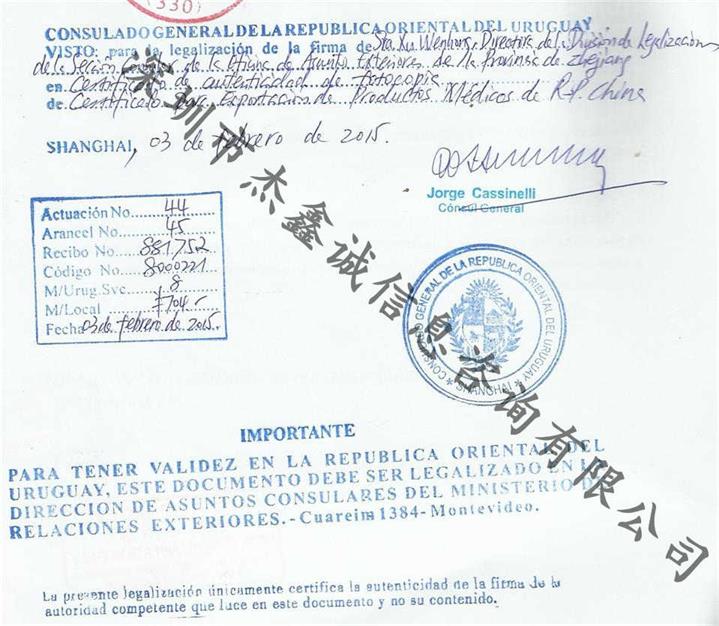 (330)
CONSULADO GENERAL DE LA REPUBLICA ORIENTAL DEL URUGUAY
VISTO: para la legalización de la firma de Sra Xu Wenhong, Directora del División de Legalización
de la Sección Consular de la Oficina de Asuntos Exteriores de la Provincia de Zhejiang
en Certificado de autenticidad de fotocopia
de Certificado para Exportación de Productos Médicos de R.P. China
SHANGHAI, 03 de febrero de 2015.
Jorge Cassinelli
Cónsul General
Actuación No. 44
Arancel No. 45
Recibo No. 881752
Código No. 8000221
M/Urug.Svc 8
M/Local 704
Fecha 03 de febrero de 2015.
CONSULADO GENERAL DE LA REPUBLICA ORIENTAL DEL URUGUAY
* SHANGHAI *
深圳市杰鑫诚信息咨询有限公司
IMPORTANTE
PARA TENER VALIDEZ EN LA REPUBLICA ORIENTAL DEL
URUGUAY, ESTE DOCUMENTO DEBE SER LEGALIZADO EN LA
DIRECCION DE ASUNTOS CONSULARES DEL MINISTERIO DE
RELACIONES EXTERIORES.-Cuareim 1384-Montevideo.
La presente legalización únicamente certifica la autenticidad de la firma de la
autoridad competente que luce en este documento y no su contenido.